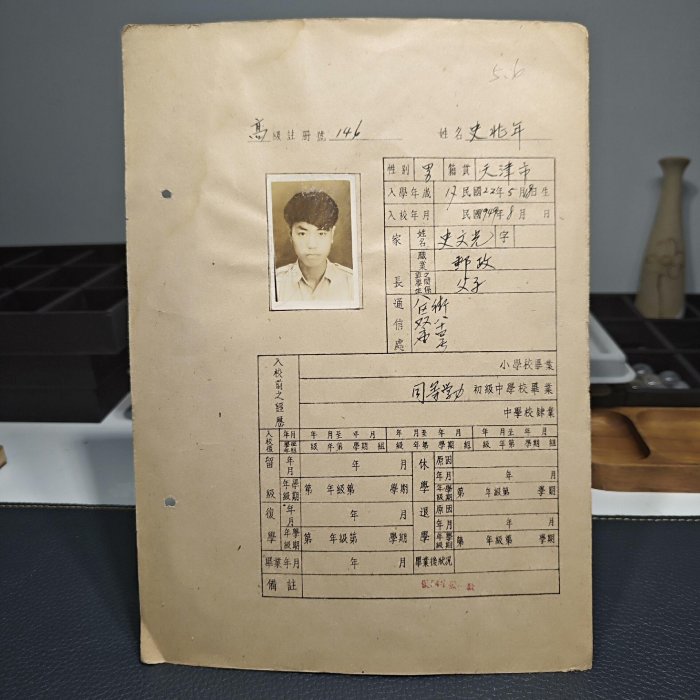 5.6
高級註冊號 146 姓名 史兆年
性别 男 籍貫 天津市
入學年歲 17 民國22年5月 日生
入校年月 民國 年8月 日
家長 姓名 史文光 字
職業 郵政
與學生之關係 父子
通信處
入校前之經歷 小學校畢業
同等學力 初級中學校畢業
中學校肄業
年月 年 月至 年 月 年 月至 年 月 年 月至 年 月
級 年第 學期 組 級 年第 學期 組 級 年第 學期 組
留級 年月 年 月 休學 原因
年月 年 月
年級學期 第 年級第 學期 年級學期 第 年級第 學期
復學 年月 年 月 退學 原因
年月 年 月
年級學期 第 年級第 學期 年級學期 第 年級第 學期
畢業年月 年 月 畢業後狀況
備註